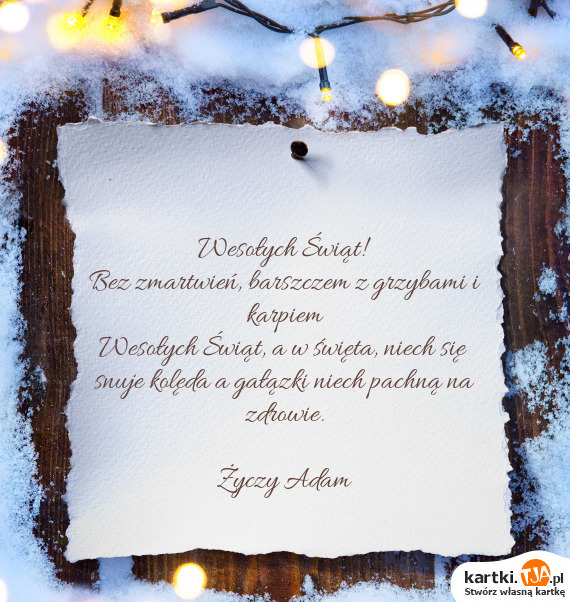 Wesołych Świąt!
Bez zmartwień, barszczem z grzybami i
karpiem
Wesołych Świąt, a w święta, niech się
snuje kolęda a gałązki niech pachną na
zdrowie.
Życzy Adam
kartki.TJA.pl
Stwórz własną kartkę